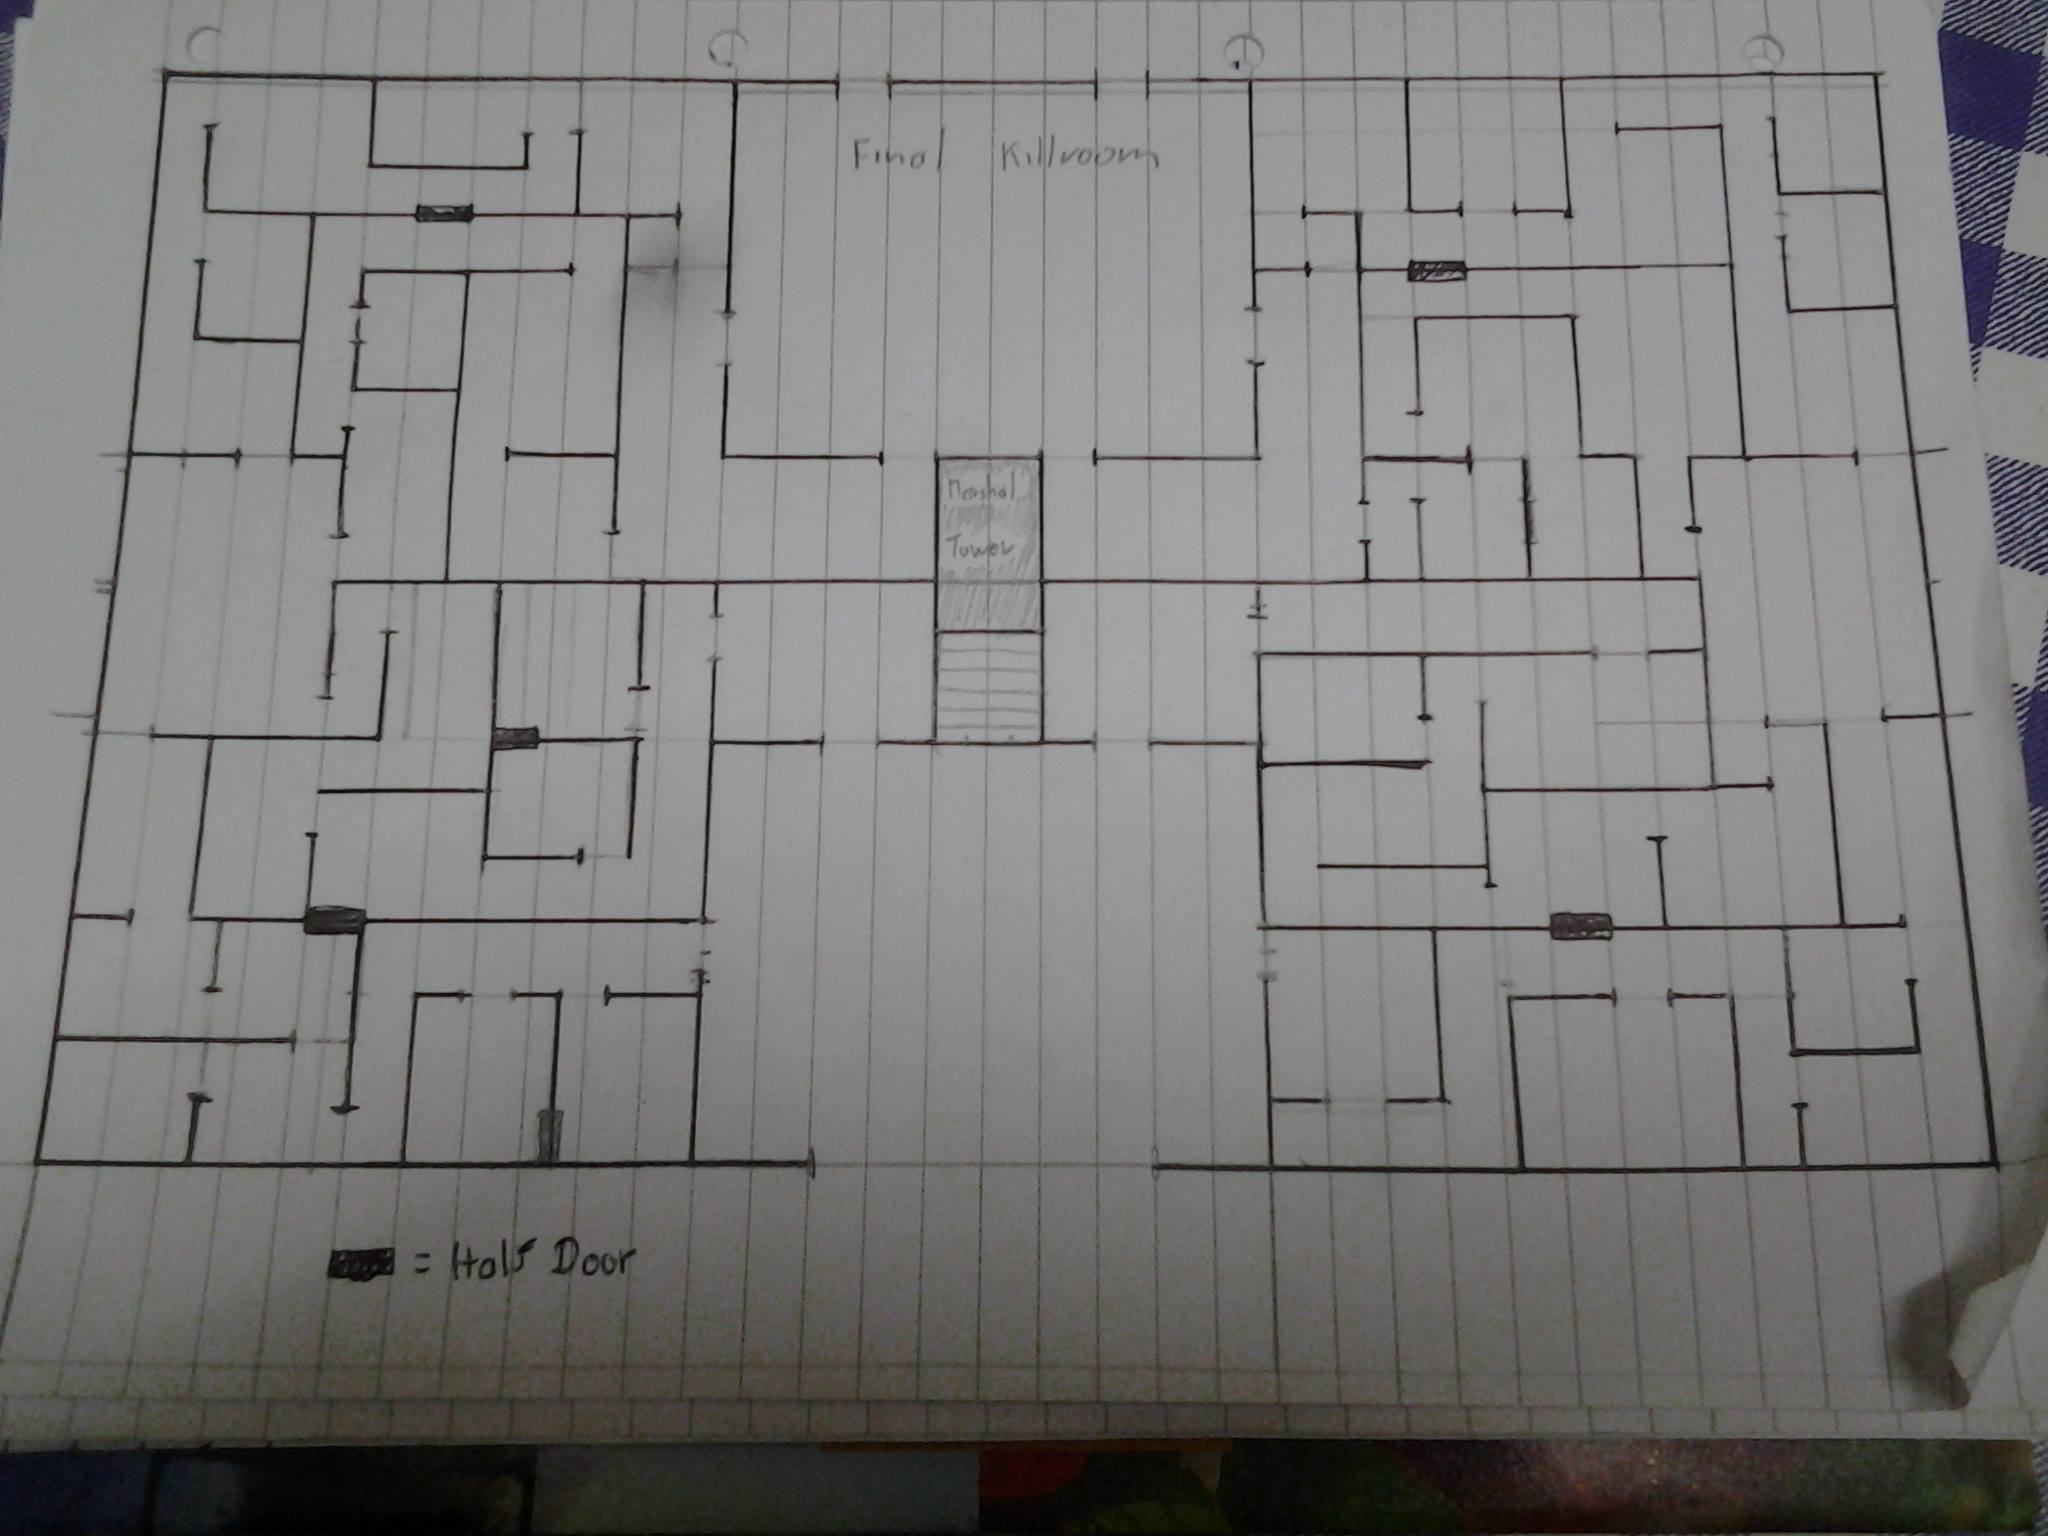 Final Killroom
Marshal
Tower
= Half Door